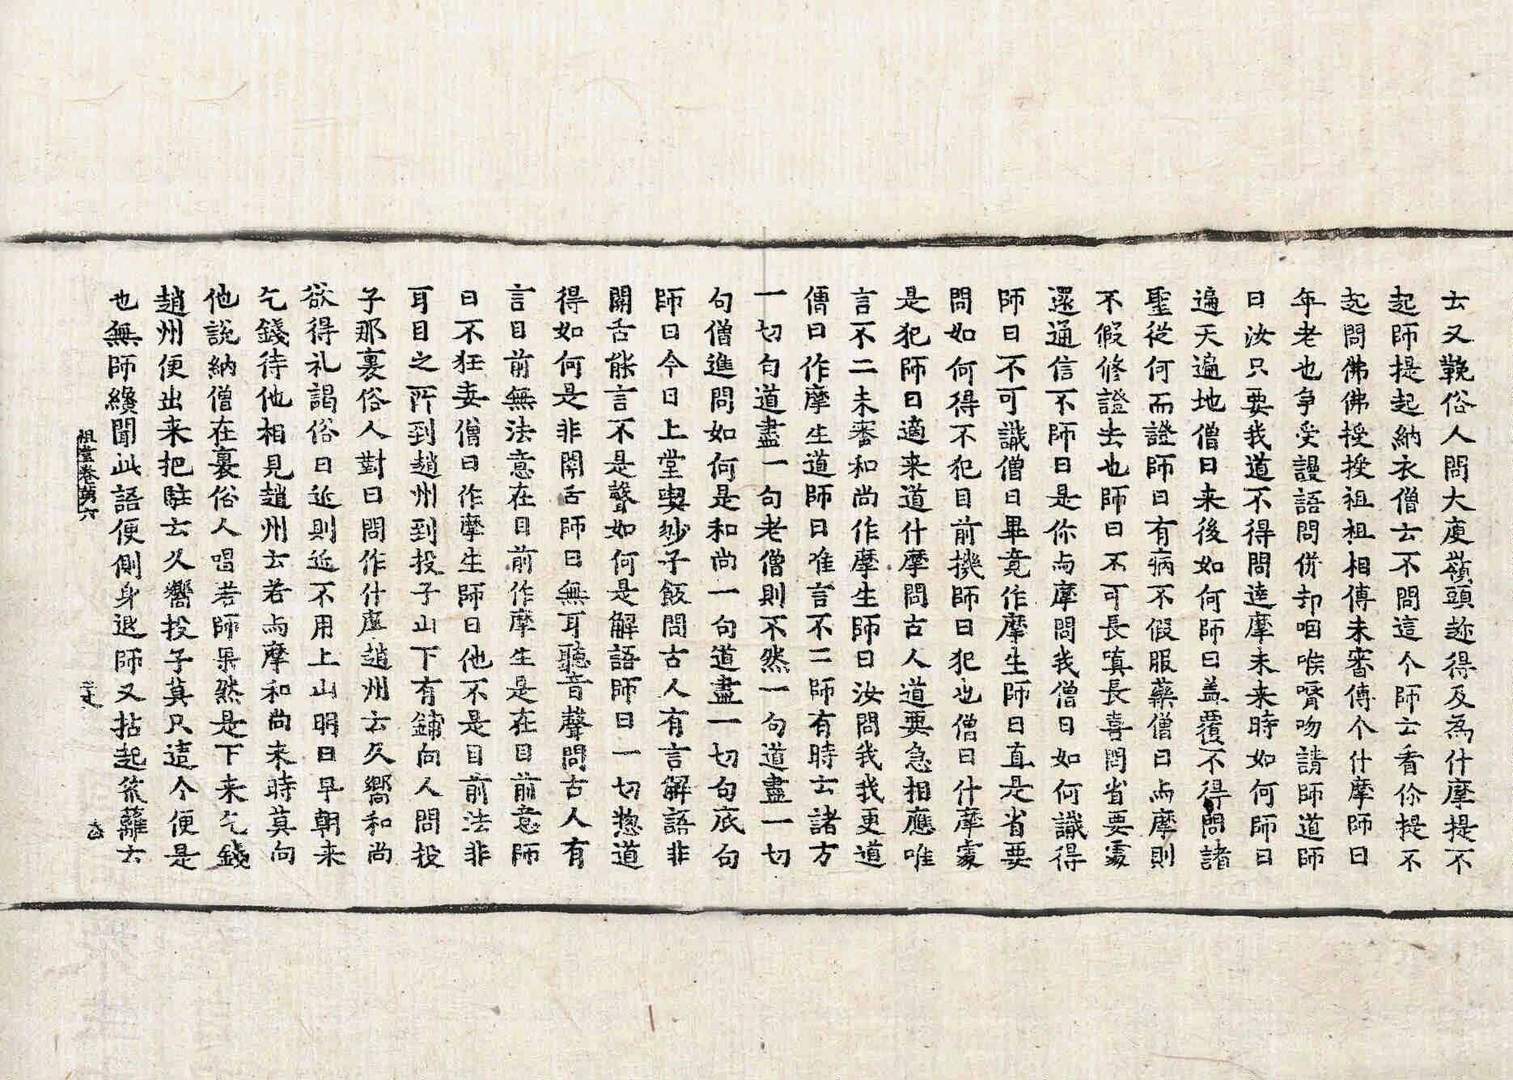 士又輓俗人問大庾嶺頭趂得及為什摩提不
起師提起納衣僧云不問這个師云看你提不
起問佛佛授授祖祖相傳未審傳个什摩師曰
年老也争受謾語問併却咽喉脣吻請師道師
曰汝只要我道不得問達摩未来時如何師曰
遍天遍地僧曰来後如何師曰盖覆不得問諸
聖從何而證師曰有病不假服藥僧曰与摩則
不假修證去也師曰不可長嗔長喜問省要處
還通信不師曰是你与摩問我僧曰如何識得
師曰不可識僧曰畢竟作摩生師曰直是省要
問如何得不犯目前機師曰犯也僧曰什摩處
是犯師曰適来道什摩問古人道要急相應唯
言不二未審和尚作摩生師曰汝問我我更道
僧曰作摩生道師曰唯言不二師有時云諸方
一切句道盡一句老僧則不然一句道盡一切
句僧進問如何是和尚一句道盡一切句底句
師曰今日上堂喫炒子飯問古人有言解語非
關舌能言不是聲如何是解語師曰一切惣道
得如何是非關舌師曰無耳聽音聲問古人有
言目前無法意在目前作摩生是在目前意師
曰不狂妄僧曰作摩生師曰他不是目前法非
耳目之所到趙州到投子山下有鋪向人問投
子那裏俗人對曰問作什摩趙州云久嚮和尚
欲得礼謁俗曰近則近不用上山明日早朝来
乞錢待他相見趙州云若与摩和尚来時莫向
他說納僧在裏俗人唱若師果然是下来乞錢
趙州便出来把駐云久嚮投子莫只這个便是
也無師纔聞此語便側身退師又拈起笊籬云
祖堂卷第六